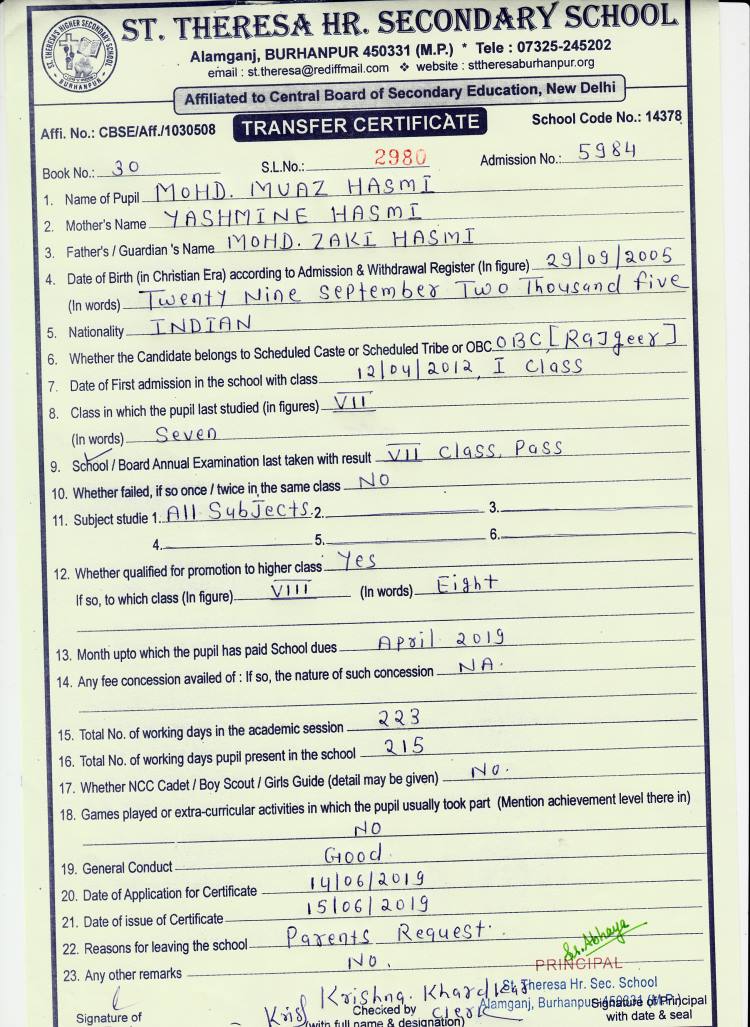 ST. THERESA HR. SECONDARY SCHOOL
Alamganj, BURHANPUR 450331 (M.P.) * Tele : 07325-245202
email : st.theresa@rediffmail.com ❖ website : sttheresaburhanpur.org
ST. THERESA'S HIGHER SECONDARY SCHOOL
BURHANPUR
Affiliated to Central Board of Secondary Education, New Delhi
Affi. No.: CBSE/Aff./1030508 TRANSFER CERTIFICATE School Code No.: 14378
Book No.: 30 S.L.No.: 2980 Admission No.: 5984
1. Name of Pupil MOHD. MUAZ HASMI
2. Mother's Name YASHMINE HASMI
3. Father's / Guardian 's Name MOHD. ZAKI HASMI
4. Date of Birth (in Christian Era) according to Admission & Withdrawal Register (In figure) 29/09/2005
(In words) Twenty Nine September Two Thousand five
5. Nationality INDIAN
6. Whether the Candidate belongs to Scheduled Caste or Scheduled Tribe or OBC OBC [Rajgeer]
7. Date of First admission in the school with class 12/04/2012, I Class
8. Class in which the pupil last studied (in figures) VII
(In words) Seven
9. School / Board Annual Examination last taken with result VII Class, Pass
10. Whether failed, if so once / twice in the same class NO
11. Subject studie 1. All Subjects 2. 3.
4. 5. 6.
12. Whether qualified for promotion to higher class Yes
If so, to which class (In figure) VIII (In words) Eight
13. Month upto which the pupil has paid School dues April 2019
14. Any fee concession availed of : If so, the nature of such concession NA.
15. Total No. of working days in the academic session 223
16. Total No. of working days pupil present in the school 215
17. Whether NCC Cadet / Boy Scout / Girls Guide (detail may be given) No.
18. Games played or extra-curricular activities in which the pupil usually took part (Mention achievement level there in)
NO
19. General Conduct Good
20. Date of Application for Certificate 14/06/2019
21. Date of issue of Certificate 15/06/2019
22. Reasons for leaving the school Parents Request.
23. Any other remarks No.
Sr. Abhaya
PRINCIPAL
St. Theresa Hr. Sec. School
Alamganj, Burhanpur 450331 (M.P.)
Krishna Khardkar
Signature of Checked by Clerk Signature of Principal
(with full name & designation) with date & seal